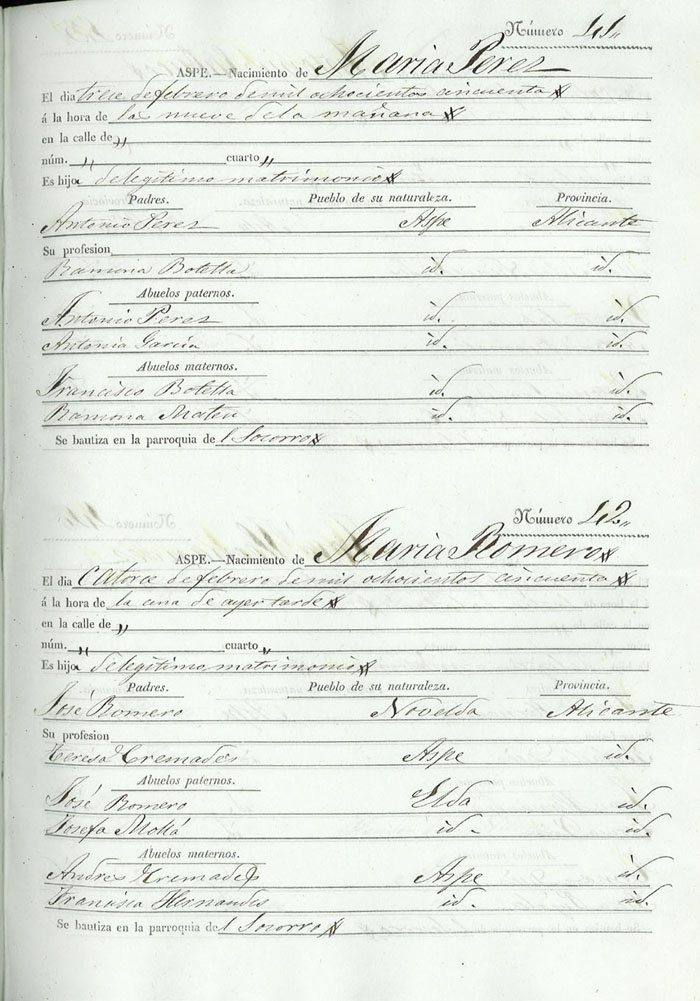 Número 41„
ASPE.—Nacimiento de Maria Perez
El dia trece de febrero de mil ochocientos cincuenta
á la hora de la nueve de la mañana
en la calle de „
núm. „ cuarto „
Es hija de legitimo matrimonio
Padres. Pueblo de su naturaleza. Provincia.
Antonio Perez Aspe Alicante
Su profesion
Ramona Botella id. id.
Abuelos paternos.
Antonio Perez id. id.
Antonia Garcia id. id.
Abuelos maternos.
Francisco Botella id. id.
Ramona Mateu id. id.
Se bautiza en la parroquia del Socorro
Número 42„
ASPE.—Nacimiento de Maria Romero
El dia catorce de febrero de mil ochocientos cincuenta
á la hora de la una de ayer tarde
en la calle de „
núm. „ cuarto „
Es hija de legitimo matrimonio
Padres. Pueblo de su naturaleza. Provincia.
José Romero Novelda Alicante
Su profesion
Teresa Cremades Aspe id.
Abuelos paternos.
José Romero Elda id.
Josefa Mollá id. id.
Abuelos maternos.
Andres Cremades Aspe id.
Francisca Hernandes id. id.
Se bautiza en la parroquia del Socorro